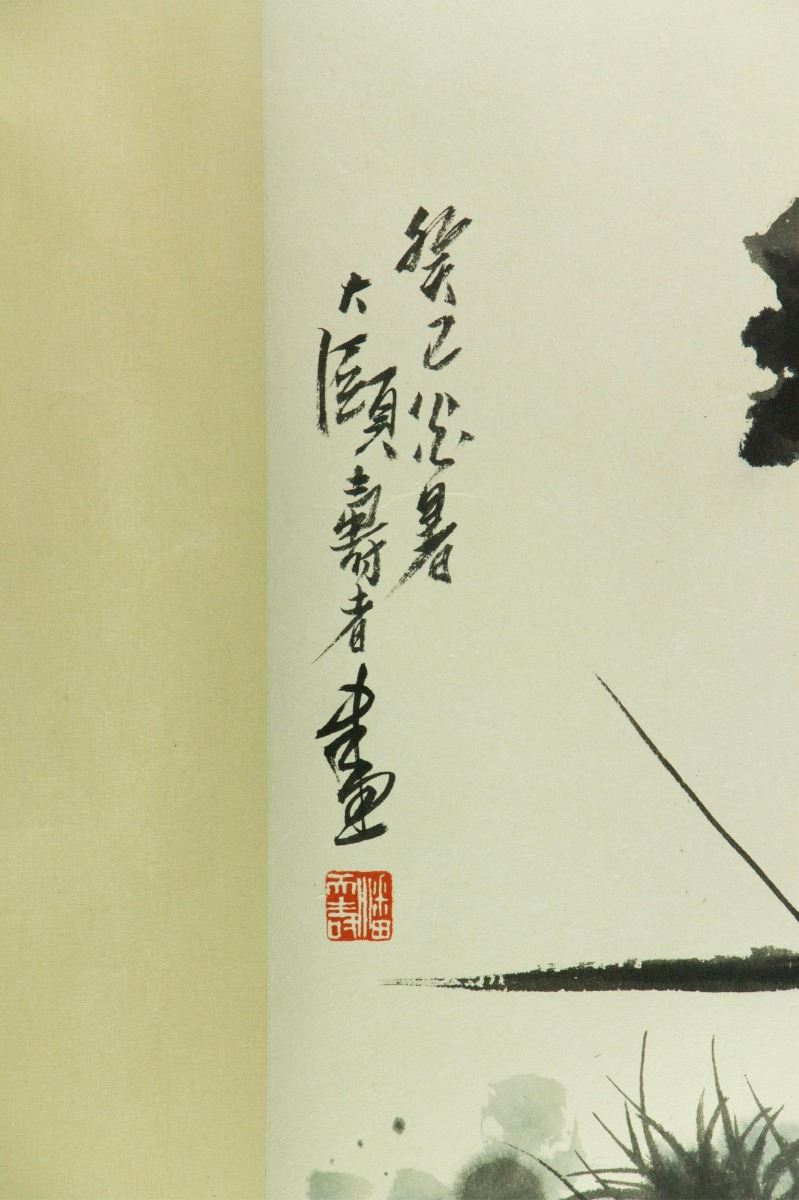 癸巳炎暑
大頤壽者畫
潘天壽